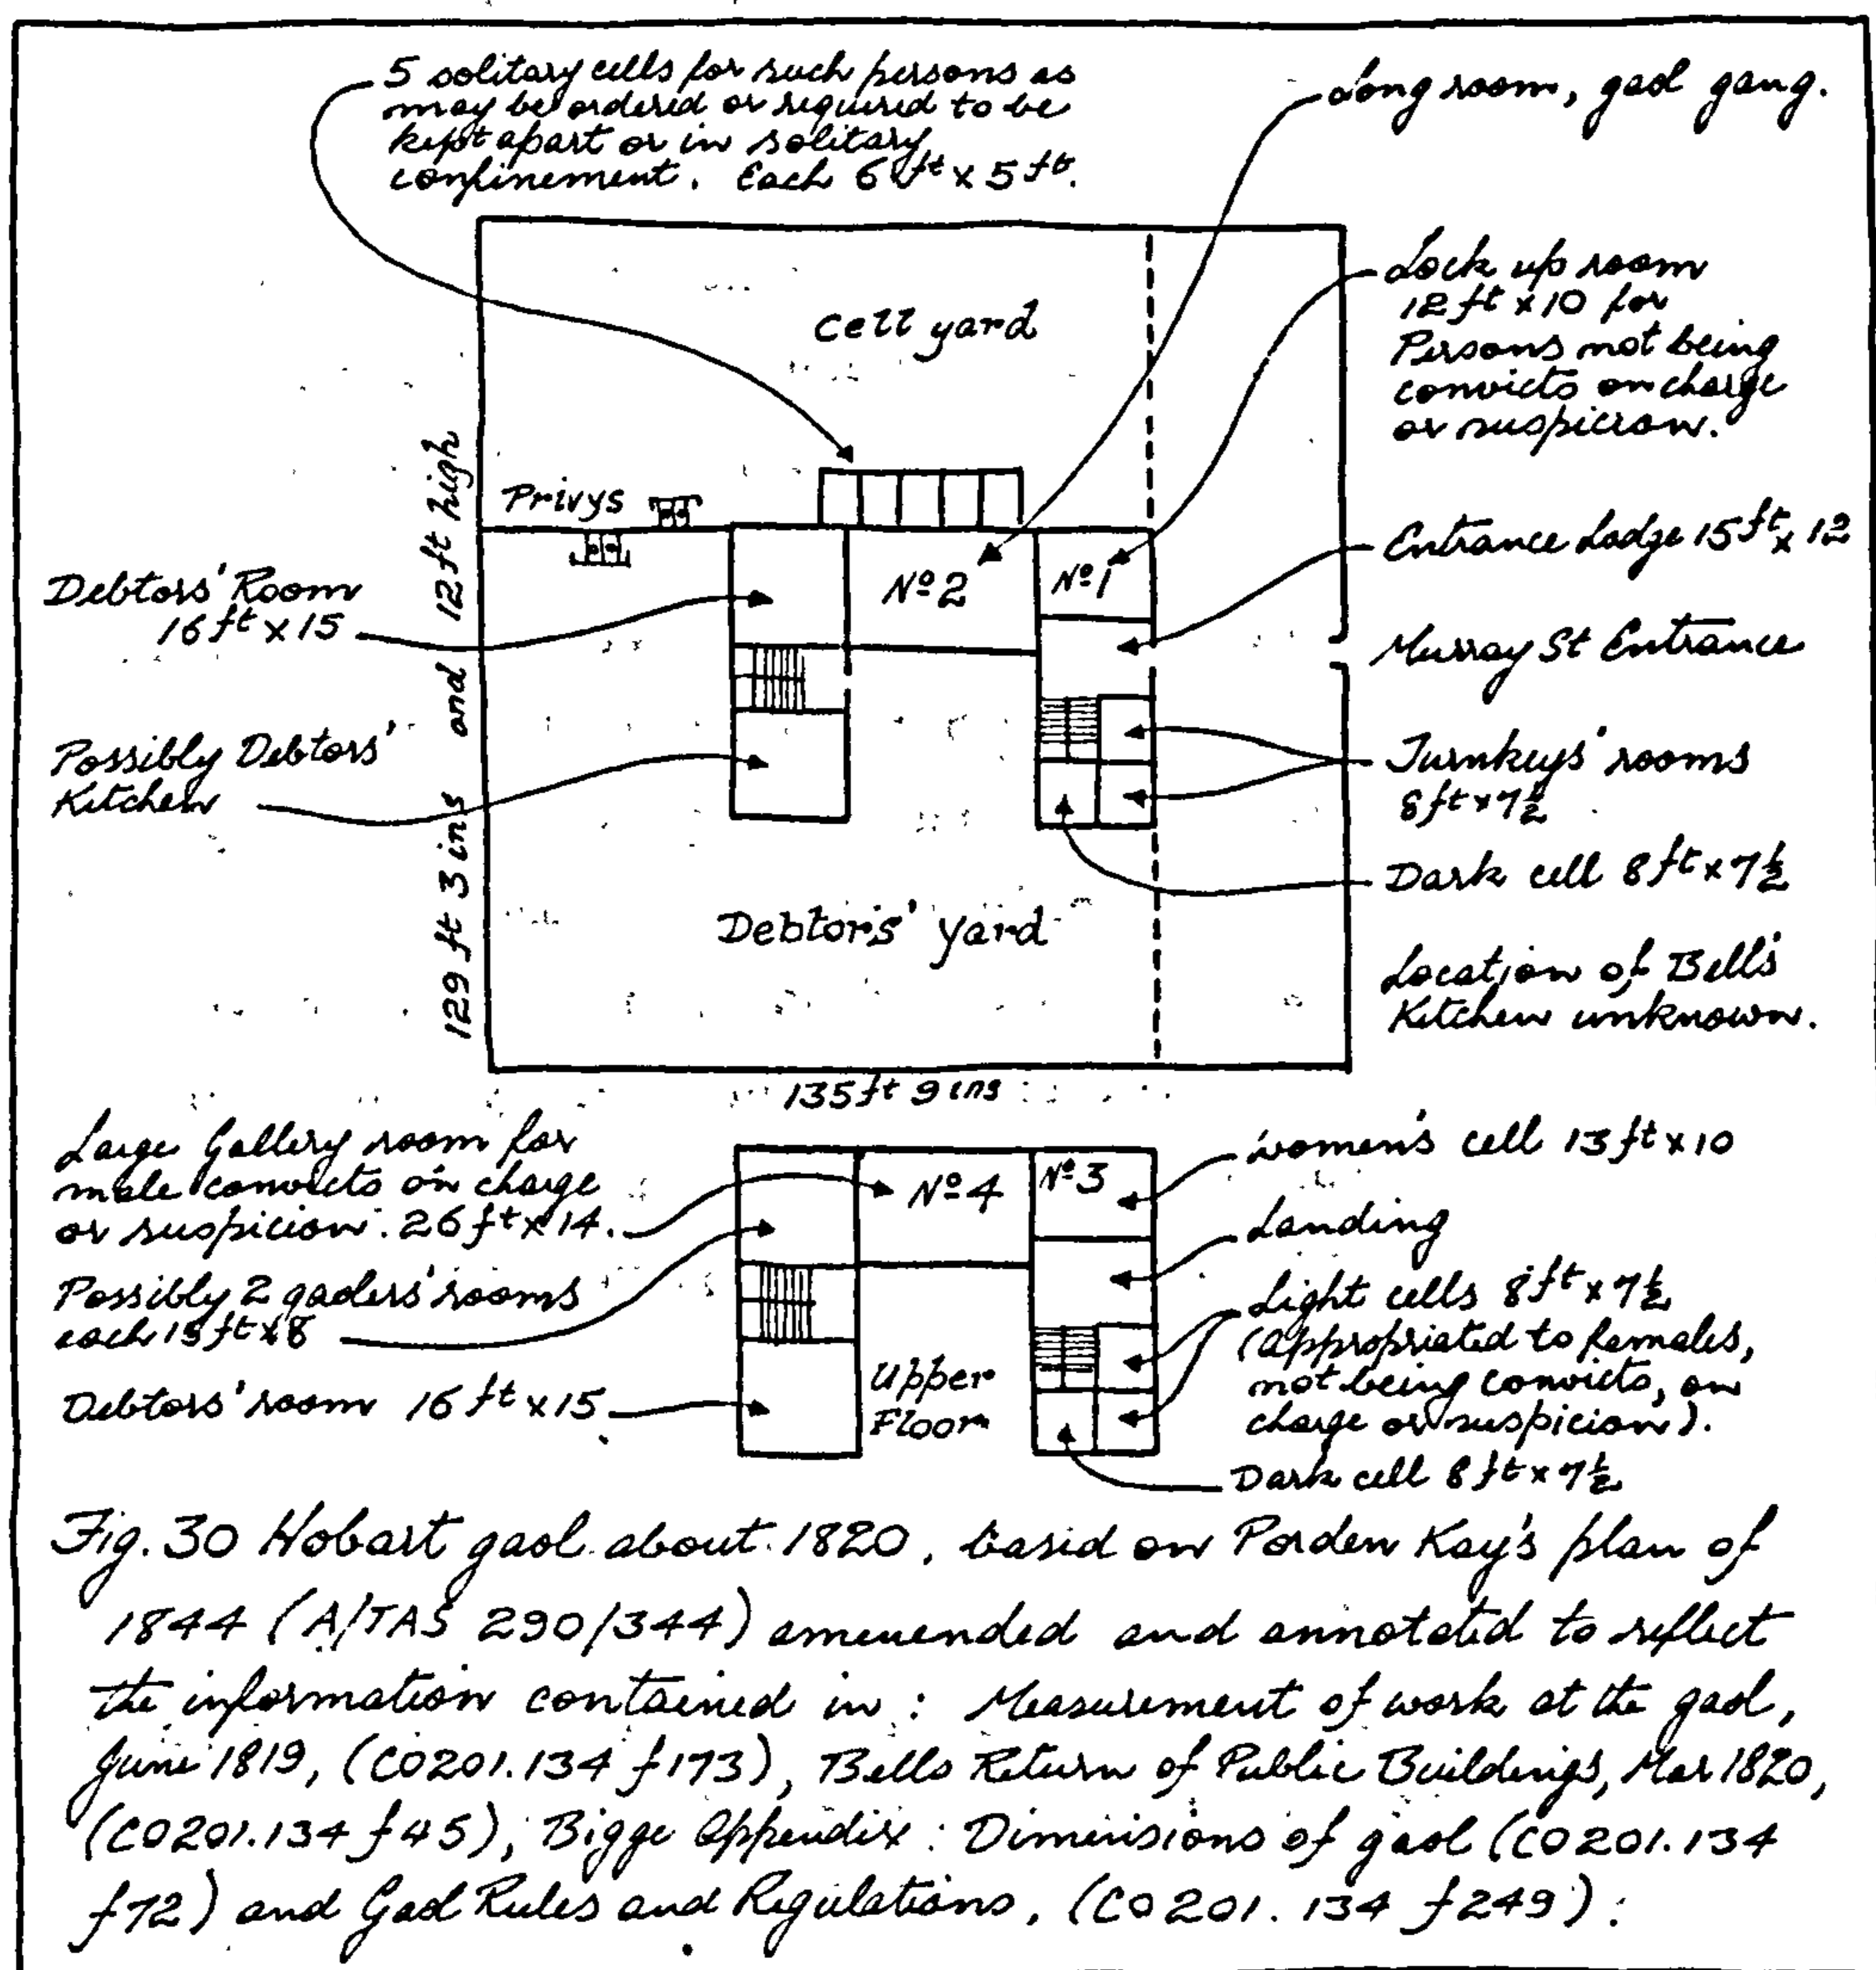 5 solitary cells for such persons as
may be ordered or required to be
kept apart or in solitary
confinement. Each 6 ft x 5 ft.
Long room, gaol gang.
Lock up room
12 ft x 10 for
Persons not being
convicts on charge
or suspicion.
Cell yard
Privys
129 ft 3 ins and 12 ft high
Entrance Lodge 15 ft x 12
Debtors' Room
16 ft x 15
Nº 2
Nº 1
Murray St Entrance
Possibly Debtors'
Kitchen
Turnkeys' rooms
8 ft x 7½
Dark cell 8 ft x 7½
Debtors' yard
Location of Bell's
Kitchen unknown.
135 ft 9 ins
Large Gallery room for
male convicts on charge
or suspicion. 26 ft x 14.
Possibly 2 gaolers' rooms
each 15 ft x 8
Debtors' room 16 ft x 15
Nº 4
Nº 3
Upper
Floor
Women's cell 13 ft x 10
Landing
Light cells 8 ft x 7½
(appropriated to females,
not being convicts, on
charge or suspicion).
Dark cell 8 ft x 7½
Fig. 30 Hobart gaol about 1820, based on Porden Kay's plan of
1844 (A/TAS 290/344) amenended and annotated to reflect
the information contained in : Measurement of work at the gaol,
June 1819, (CO201.134 f173), Bells Return of Public Buildings, Mar 1820,
(CO201.134 f45), Bigge Appendix : Dimensions of gaol (CO201.134
f72) and Gaol Rules and Regulations, (CO201.134 f249).